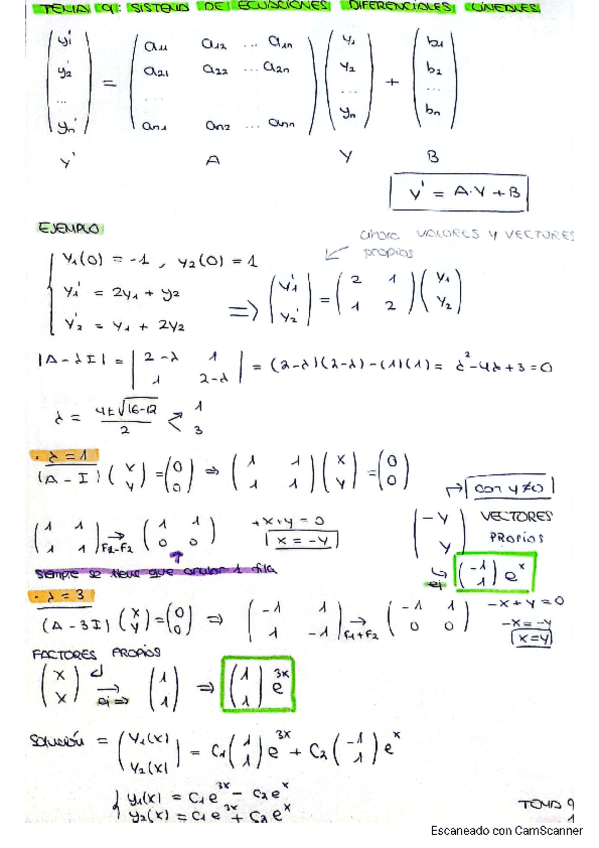 TEMA 9: SISTEMA DE ECUACIONES DIFERENCIALES LINEALES
(y1' y2' ... yn') = (a11 a12 ... a1n; a21 a22 ... a2n; ...; an1 an2 ... ann) (y1 y2 ... yn) + (b1 b2 ... bn)
Y' A Y B
Y' = A·Y + B
EJEMPLO
ahora VALORES Y VECTORES propios
y1(0) = -1, y2(0) = 1
y1' = 2y1 + y2
y2' = y1 + 2y2
=> (y1'; y2') = (2 1; 1 2) (y1; y2)
|A - λI| = |2-λ 1; 1 2-λ| = (2-λ)(2-λ) - (1)(1) = λ² - 4λ + 3 = 0
λ = (4 ± √16-12)/2 < 1 3
· λ = 1
(A - I) (x; y) = (0; 0) => (1 1; 1 1) (x; y) = (0; 0)
con y≠0
(1 1; 1 1) F2-F2 → (1 1; 0 0) +x+y = 0
x = -y
(-y; y) VECTORES PROPIOS
ej (-1; 1) eˣ
siempre se tiene que anular 1 fila
· λ = 3
(A - 3I) (x; y) = (0; 0) => (-1 1; 1 -1) F1+F2 → (-1 1; 0 0) -x+y = 0
-x = -y
x=y
FACTORES PROPIOS
(x; x) ej => (1; 1) => (1; 1) e³ˣ
Solución = (y1(x); y2(x)) = C1 (1; 1) e³ˣ + C2 (-1; 1) eˣ
y1(x) = C1 e³ˣ - C2 eˣ
y2(x) = C1 e³ˣ + C2 eˣ
TEMA 9
1
Escaneado con CamScanner